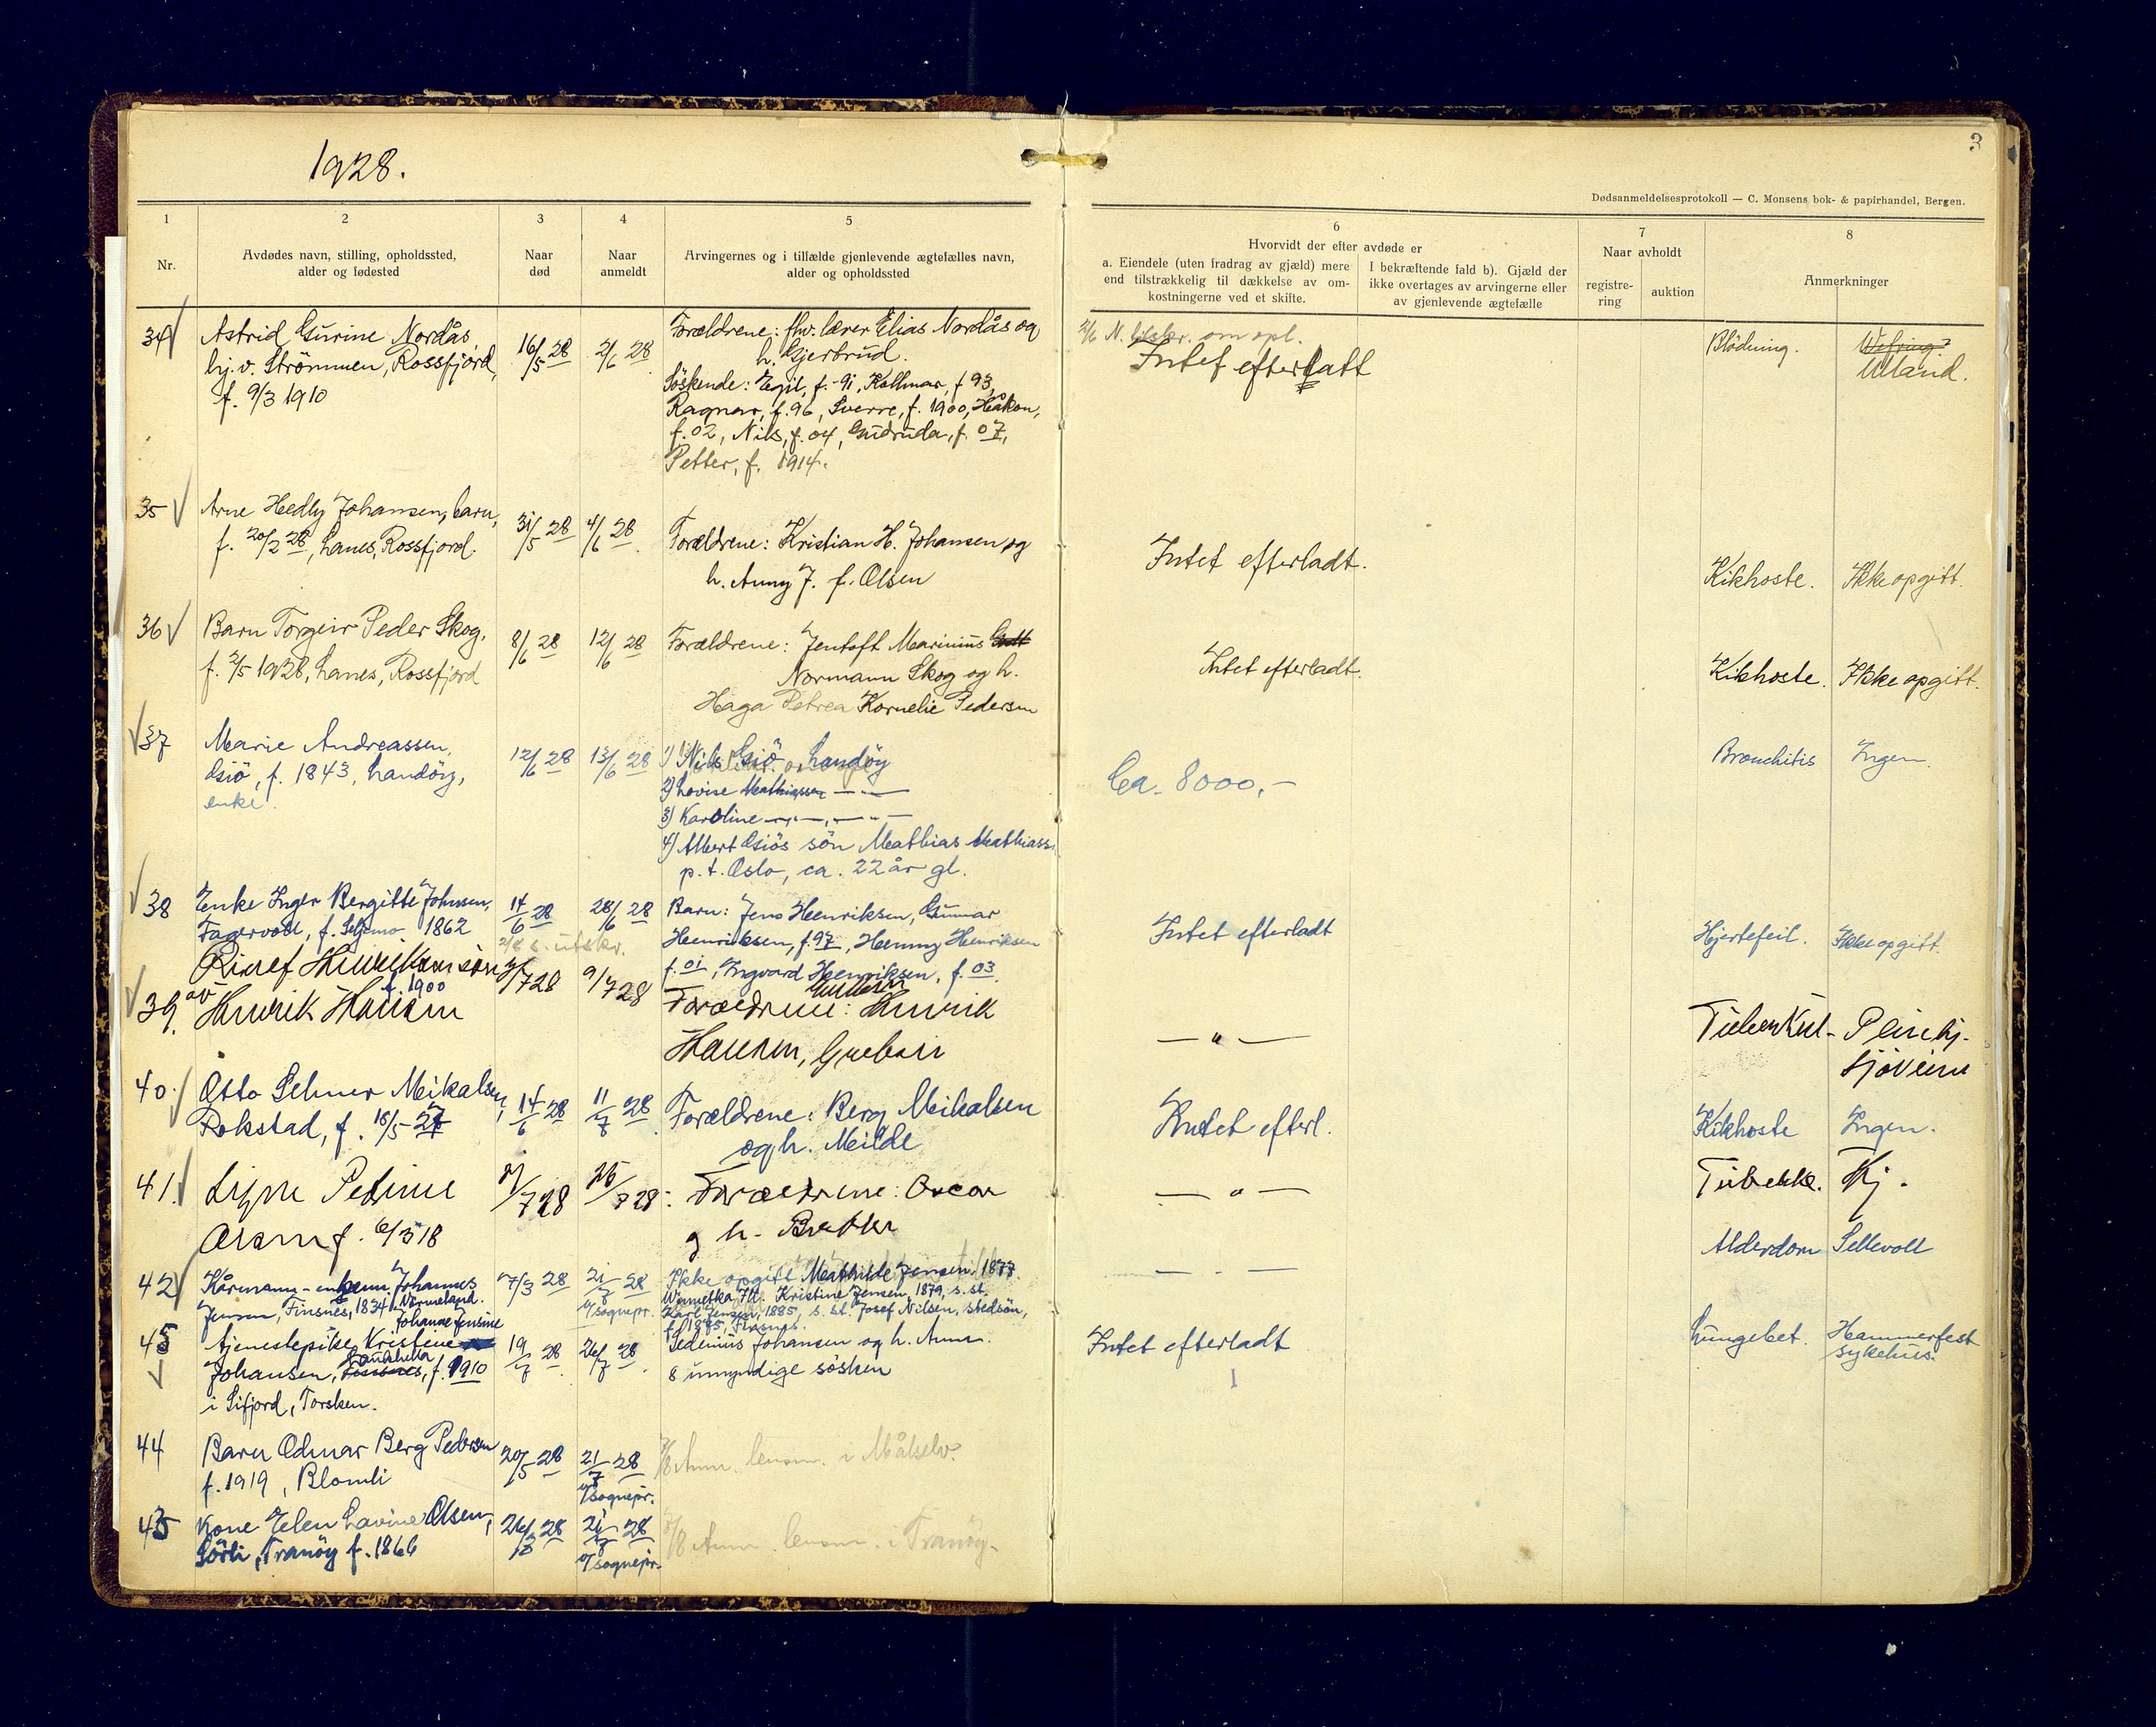 1928.
3
Dødsanmeldelsesprotokoll — C. Monsens bok- & papirhandel, Bergen.
1
2
3
4
5
6
7
8
Nr.
Avdødes navn, stilling, opholdssted,
alder og fødested
Naar
død
Naar
anmeldt
Arvingernes og i tilfælde gjenlevende ægtefælles navn,
alder og opholdssted
Hvorvidt der efter avdøde er
a. Eiendele (uten fradrag av gjæld) mere
end tilstrækkelig til dækkelse av om-
kostningerne ved et skifte.
I bekræftende fald b). Gjæld der
ikke overtages av arvingerne eller
av gjenlevende ægtefælle
Naar avholdt
registre-
ring
auktion
Anmerkninger
34
Astrid Gurine Nordås,
hj.v. Strömmen, Rossfjord,
f. 9/3 1910
16/5 28
2/6 28
Forældrene: fhv. lærer Elias Nordås og
h. Gjertrud.
Söskende: Egil, f. 91, Kollmar, f 93,
Ragnar, f. 96, Sverre, f. 1900, Håkon,
f. 02, Nils, f. 04, Gudruda, f. 07,
Petter, f. 1914.
2/6 N. tilskr. om opl.
Intet efterlatt
Blödning.
Ulland.
35
Arne Hedly Johansen, barn,
f. 20/2 28, Lanes, Rossfjord.
31/5 28
4/6 28
Forældrene: Kristian H. Johansen og
h. Anny J. f. Olsen
Intet efterladt.
Kikhoste.
Ikke opgitt.
36
Barn Torgeir Peder Skog,
f. 2/5 1928, Lanes, Rossfjord
8/6 28
12/6 28
Forældrene: Jentoft Marinius
Normann Skog og h.
Haga Petrea Kornelie Pedersen
Intet efterladt.
Kikhoste.
Ikke opgitt.
37
Marie Andreassen,
Gsiö, f. 1843, Landöy,
enke.
12/6 28
13/6 28
1) Nils Gsiö, Landöy
2) Lovise Mathiassen — " —
3) Karoline — " —, — " —
4) Albert Gsiös sön Mathias Mathiass.
p.t. Oslo, ca. 22 år gl.
Ca. 8000,-
Bronchitis
Ingen.
38
Enke Inger Bergitte Johnsen,
Fagervoll, f. 1862
14/6 28
28/6 28
Barn: Jens Henriksen, Gunnar
Henriksen, f. 97, Henny Henriksen
f. 01, Ingvard Henriksen, f. 03.
Intet efterladt
Hjertefeil.
Ikke opgitt.
39.
sön
av f. 1900
Henrik Hansen
/7 28
9/7 28
Forældrene: Henrik
Hansen,
— " —
Tuberkul-
Pleiehj.
Sjöveien
40.
Otto Selmer Mikalsen,
Rokstad, f. 18/5 27
14/6 28
11/7 28
Forældrene: Berg Mikalsen
og h. Milde
Intet efterl.
Kikhoste
Ingen.
41.
Signe Petrine
Olsen f. 6/3 18
/7 28
28
Forældrene: Oscar
g h.
— " —
Tuberkl.
Kj.
42
Kårmann - enkem. Johannes
Jensen, Finsnes, 1834
7/3 28
21/7 28
v/sognepr.
Ikke opgitt Mathilde Jensen, 1877.
Kristine Jensen, 1879, s. st.
Karl Jensen, 1885, s. st. Josef Nilsen, stedsön,
— " —
Alderdom
Sellevoll
43
Johanne Jensine
Tjenestepike Kristine
Johansen, f. 1910
i Sifjord, Torsken.
19/7 28
26/7 28
Pedenius Johansen og h. Anna.
8 umyndige sösken
Intet efterladt
Lungebet.
Hammerfest
sykehus.
44
Barn Odmar Berg Pedersen
f. 1919, Blomli
20/5 28
21/7 28
v/sognepr.
/8 Anm. lensm. i Målselv.
45
Kone Elen Lavine Olsen,
Sörli, Tranöy f. 1866
26/3 28
21/7 28
v/sognepr.
/8 Anm. lensm. i Tranöy.